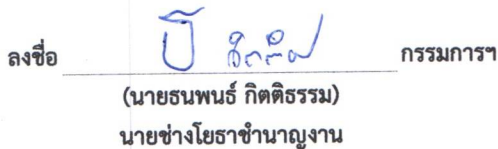 ลงชื่อ กรรมการฯ
(นายธนพนธ์ กิตติธรรม)
นายช่างโยธาชำนาญงาน